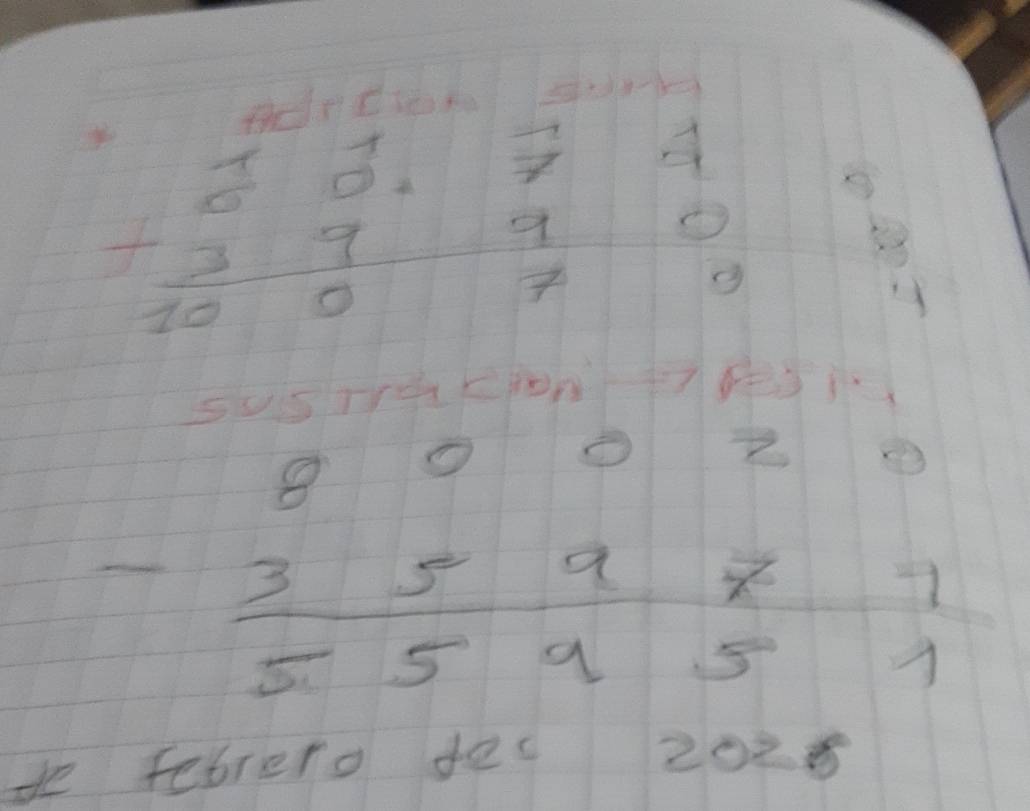 * Adicion suma
1 1 1 1
6 0. 7 1 0
+ 3 9 9 0
10 0 7 0 1
sustracion → resta
8 0 0 2 0
- 3 5 9 7 1
5 5 9 5 1
de febrero del 202